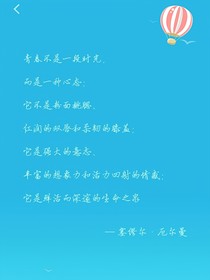 青春不是一段时光，
而是一种心态；
它不是粉面桃腮、
红润的双唇和柔韧的膝盖，
它是强大的意志、
丰富的想象力和活力四射的情感；
它是鲜活而深邃的生命之泉
——塞缪尔·厄尔曼